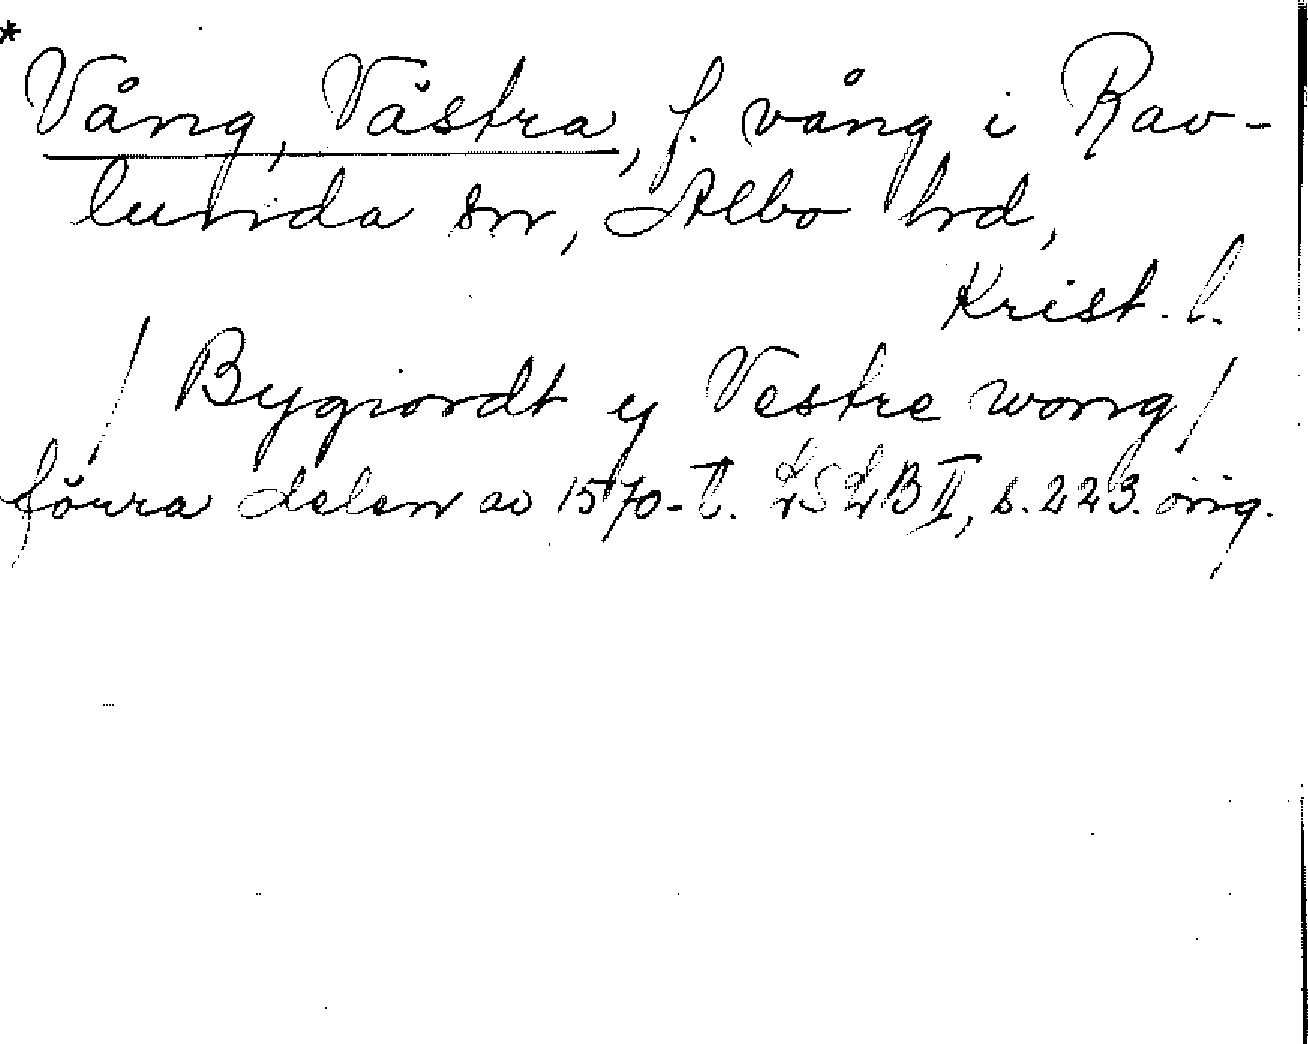 * Vång, Västra, f. vång i Rav-
lunda sn, Albo hd,
Krist. l.
/ Bygiordt y Vestre wong /
förra delen av 1570-t. LSLB II, s. 223. orig.